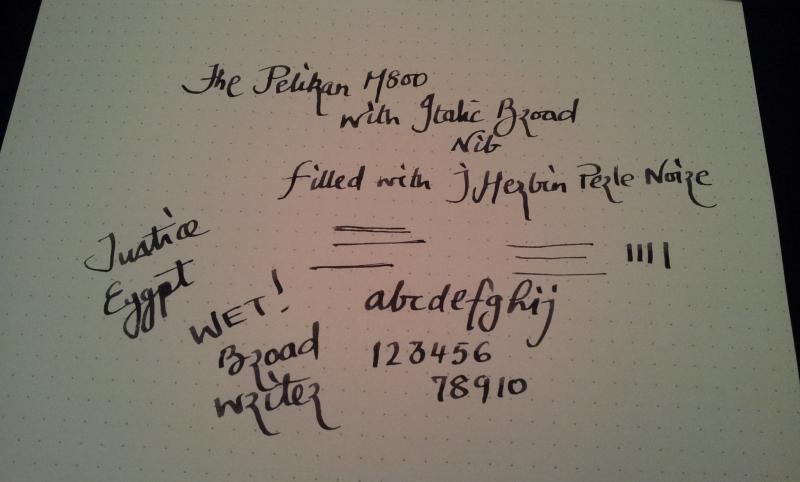 The Pelikan M800
with Italic Broad
Nib
filled with J Herbin Perle Noire
Justice
Eygpt
WET!
Broad
writer
abcdefghij
123456
78910